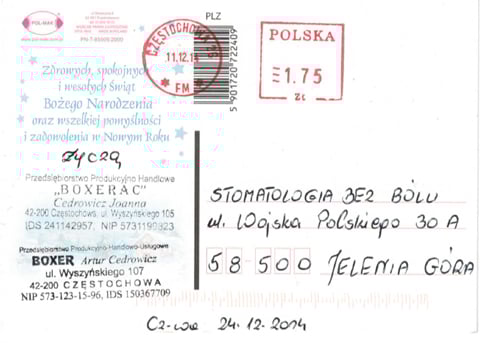 POL-MAK
PN-T-85005:2000
PLZ
5 901720 722409
CZĘSTOCHOWA 16
11.12.14
FM
POLSKA
1.75
ZŁ
Zdrowych, spokojnych
i wesołych Świąt
Bożego Narodzenia
oraz wszelkiej pomyślności
i zadowolenia w Nowym Roku
życzą
Przedsiębiorstwo Produkcyjno Handlowe
„BOXERAC"
Cedrowicz Joanna
42-200 Częstochowa, ul. Wyszyńskiego 105
IDS 241142957, NIP 5731199323
Przedsiębiorstwo Produkcyjno-Handlowo-Usługowe
BOXER Artur Cedrowicz
ul. Wyszyńskiego 107
42-200 CZĘSTOCHOWA
NIP 573-123-15-96, IDS 150367709
STOMATOLOGIA BEZ BÓLU
ul. Wojska Polskiego 30 A
58-500 JELENIA GÓRA
Cz-wa 24.12.2014